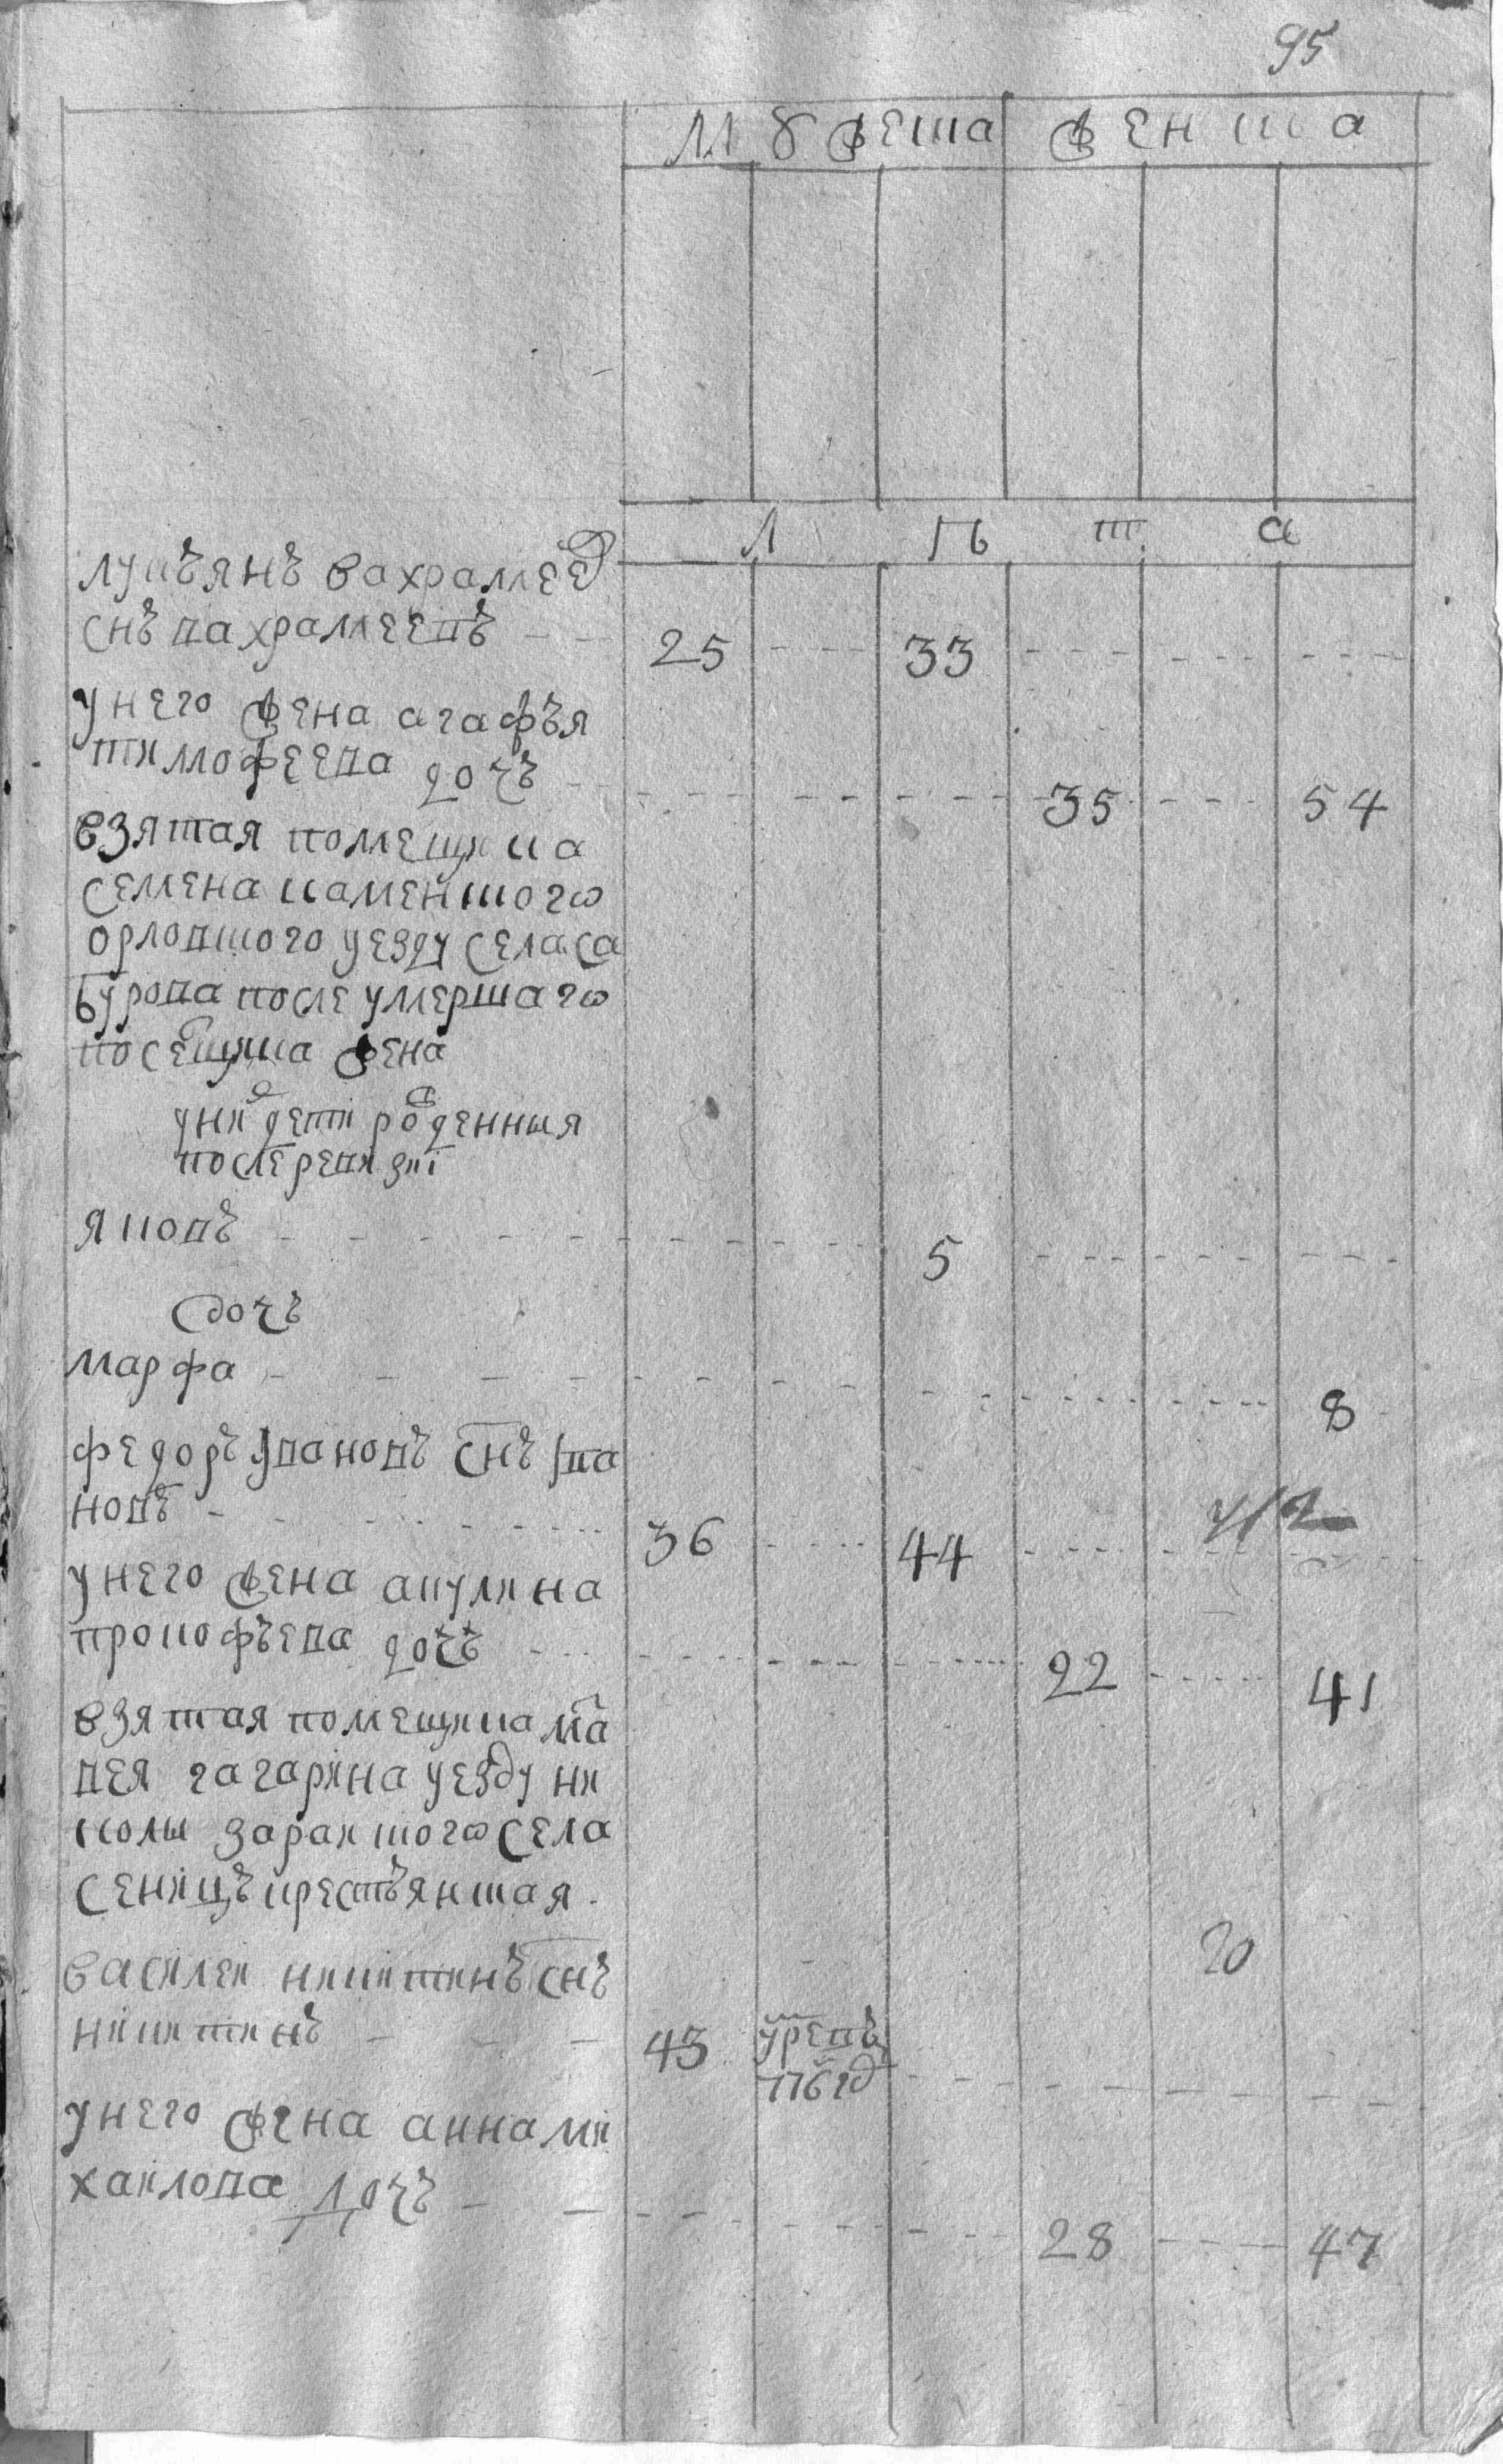 95
Мужеска женска
Л ѣ т а
лукьянъ вахрамеев
снъ вахрамеевъ 25 33
у него жена агафья
тимофеева дочь 35 54
взятая помещика
семена каменского
орловского уезду села са
бурова после умершаго
жена
у них дети рожденныя
после ревизиї
яковъ 5
дочь
марфа 8
федоръ ивановъ снъ ива
новъ 36 44
у него жена акулина
прокофьева дочь 22 41
взятая помещика мат
вея гагарина уезду ни
колы зараиского села
сеницъ крестьянская
20
василеи никитинъ снъ
никитинъ 43
у него жена анна ми
хаилова дочь 28 47